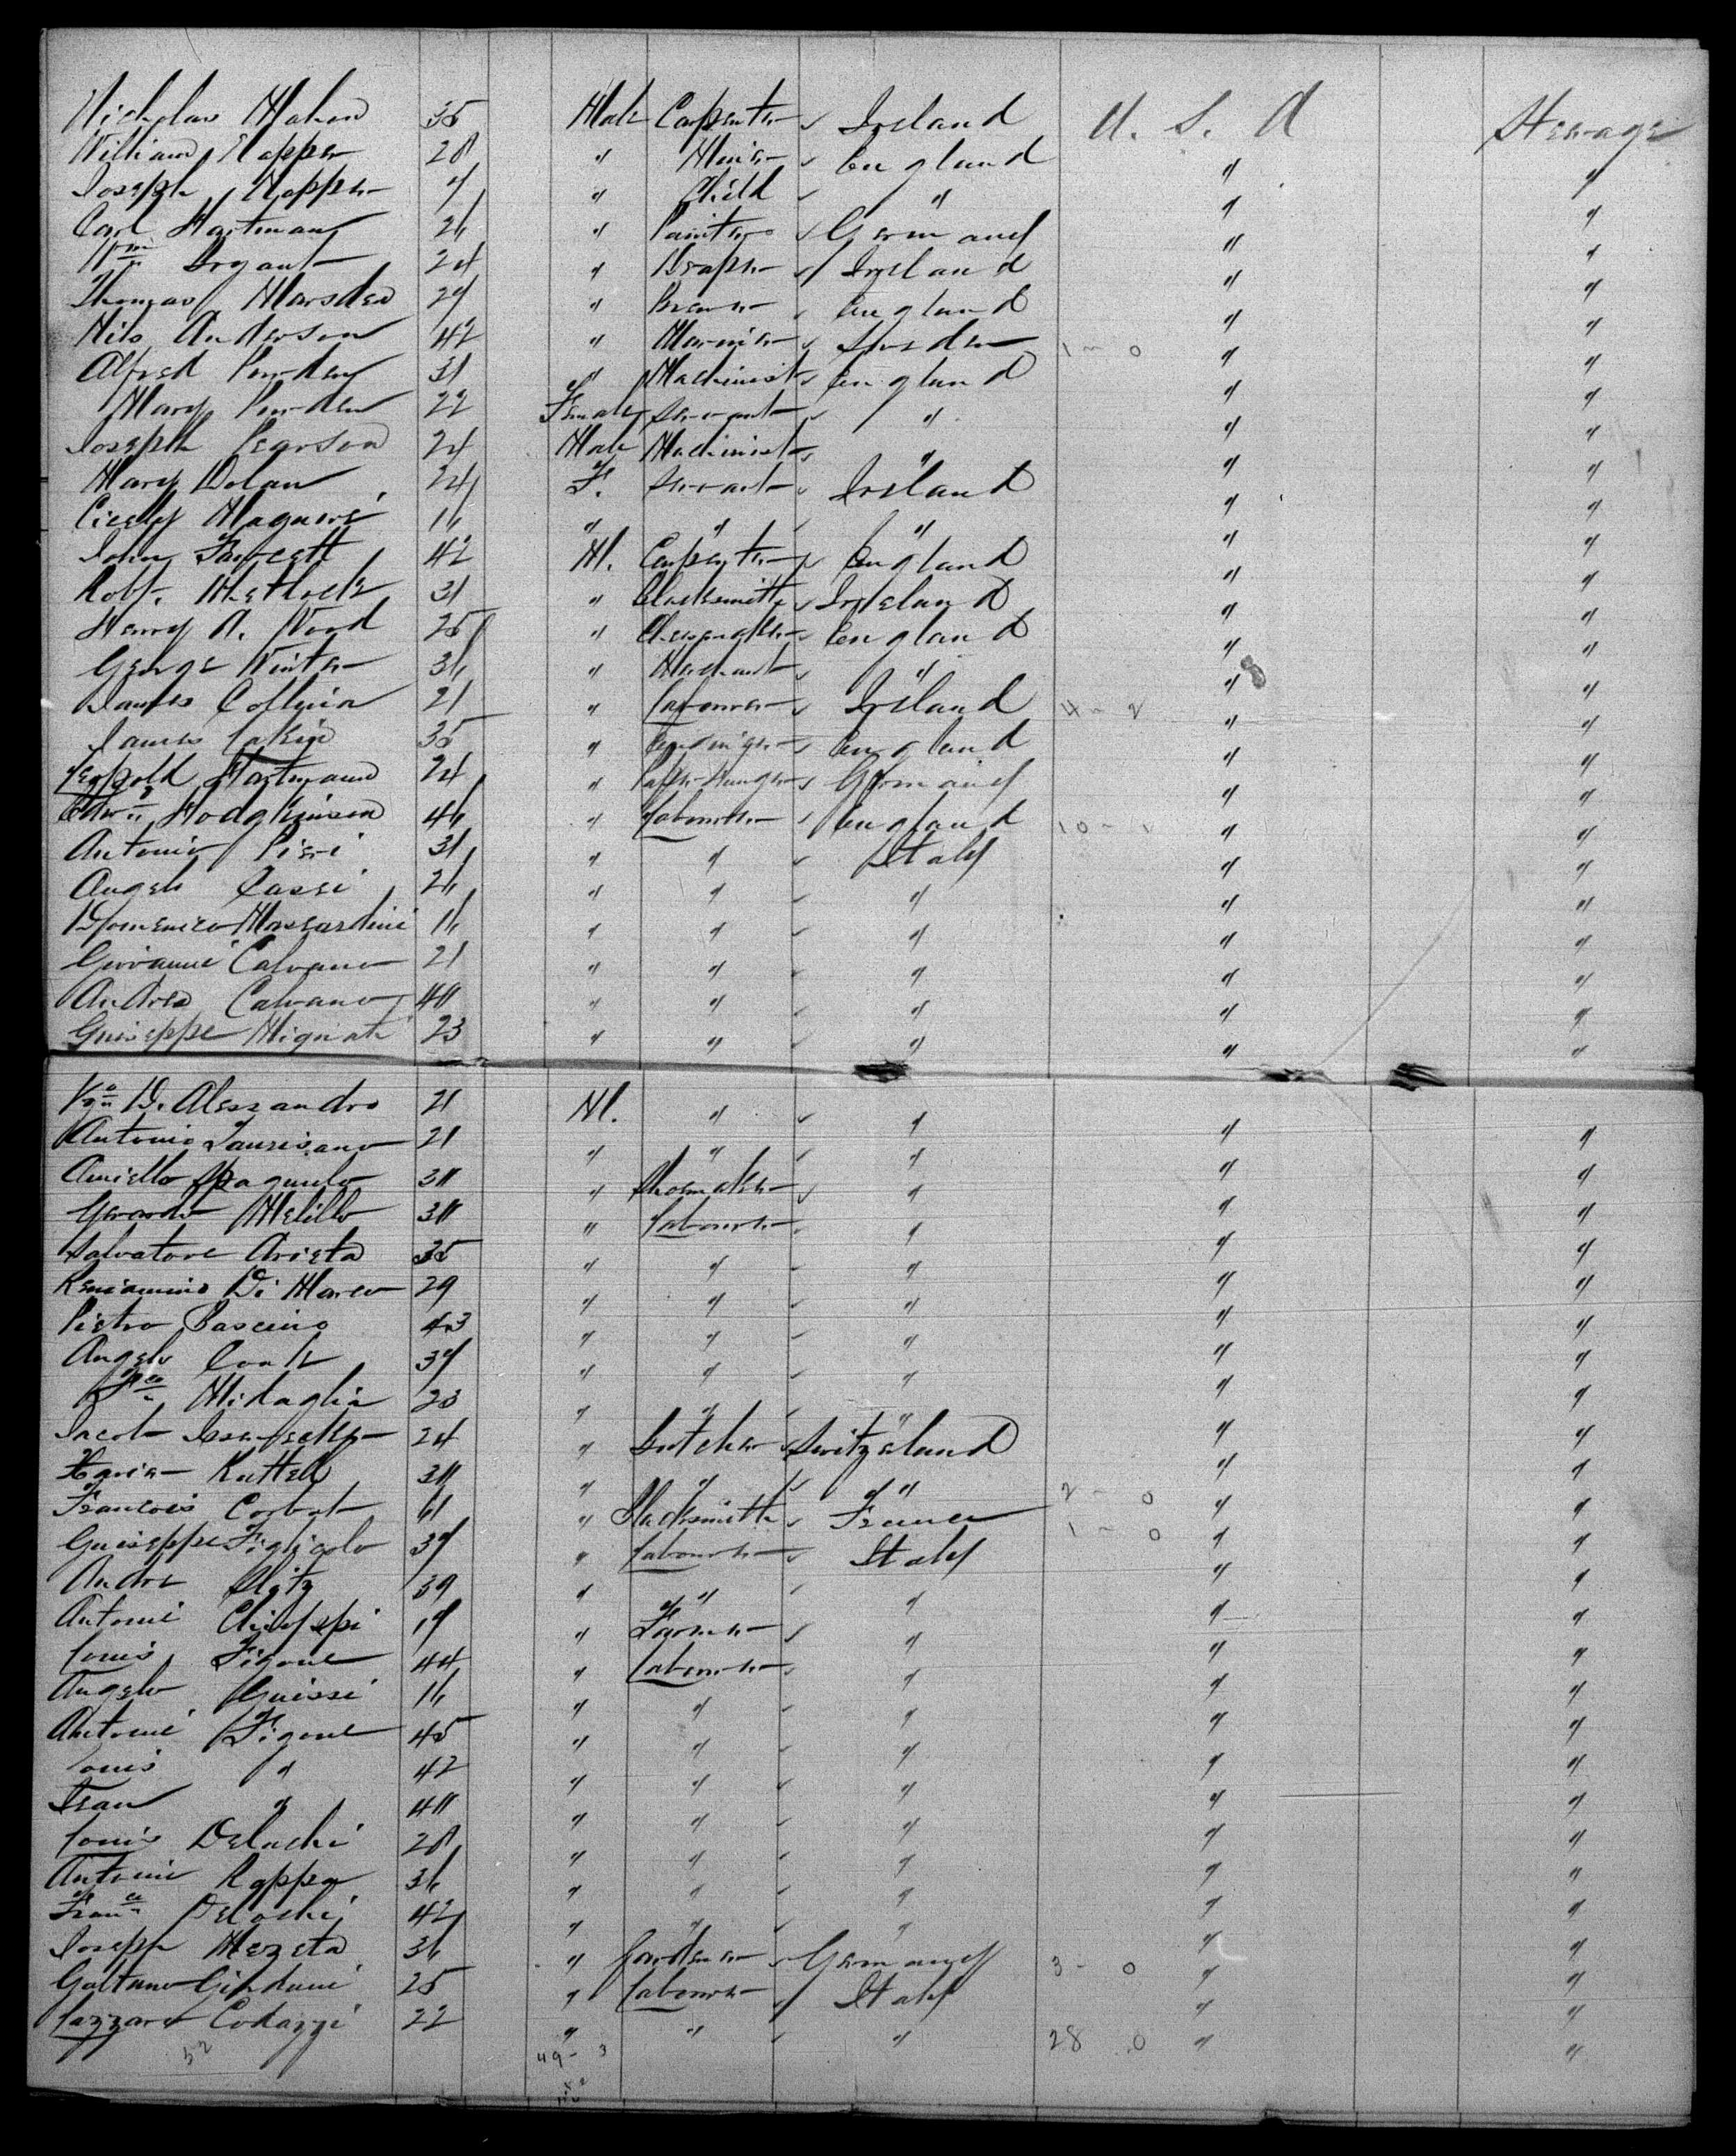 Nicholas Mahon 35 Male Carpenter Ireland U. S. A Steerage
William Hopper 28 " Miner England " "
Joseph Hopper 7 " Child " " "
Carl Hartman 26 " Painter Germany " "
Wm Bryant 24 " Draper Ireland " "
Thomas Marsden 27 " Brewer England " "
Nils Anderson 42 " Mariner Sweden 1 - 0 " "
Alfred Purden 31 " Machinist England " "
Mary Purden 22 Female Servant " " "
Joseph Pearson 24 Male Machinist " " "
Mary Dolan 24 F. Servant Ireland " "
Cicely Maguire 16 " " " " "
John Fawcett 42 M. Carpenter England " "
Robt. 31 " Blacksmith Ireland " "
Henry A. Wood 25 " England " "
George Winter 36 " Merchant " " "
James 21 " Labourer Ireland 4 - 2 " "
James Lakin 35 " England " "
Leopold Hartmann 24 " Paper-Hanger Germany " "
Edwd Hodgkinson 46 " Labourer England 10 - 1 " "
Antonio Pieri 36 " " Italy " "
Angelo Cassi 26 " " " " "
Domenico Massardini 16 " " " " "
Giovanni Calvano 21 " " " " "
Andrea Calvano 40 " " " " "
Guiseppe Mignati 23 " " " " "
D. Alessandro 21 M. " " " "
Antonio Taurisano 21 " " " " "
Aniello Spagnulo 30 " Shoemaker " " "
Gerardo Melillo 30 " Labourer " " "
Salvatore Arieta 35 " " " " "
Beniamino Di Marco 29 " " " " "
Pietro Pascino 43 " " " " "
Angelo Conte 37 " " " " "
Fco Midaglia 23 " " " " "
Jacob 24 " Butcher Switzerland " "
Xavier Kuttel 30 " " " 2 - 0 " "
Francois Corbat 61 " Blacksmith France 1 - 0 " "
Guiseppe Figliolo 37 " Labourer Italy " "
Andre 39 " " " " "
Antoine 17 " Farmer " " "
Louis Figone 44 " Labourer " " "
Angelo Guissi 16 " " " " "
Antoine Figone 45 " " " " "
Louis " 42 " " " " "
Jean " 40 " " " " "
Louis Deluchi 28 " " " " "
Antoine Roppa 36 " " " " "
Franco Delochi 42 " " " " "
Joseph Mezeta 36 " Gardener Germany 3 - 0 " "
Gaetano Giuduni 25 " Labourer Italy " "
Lazzaro Codazzi 22 " " " 28 0 " "
52 49 - 3